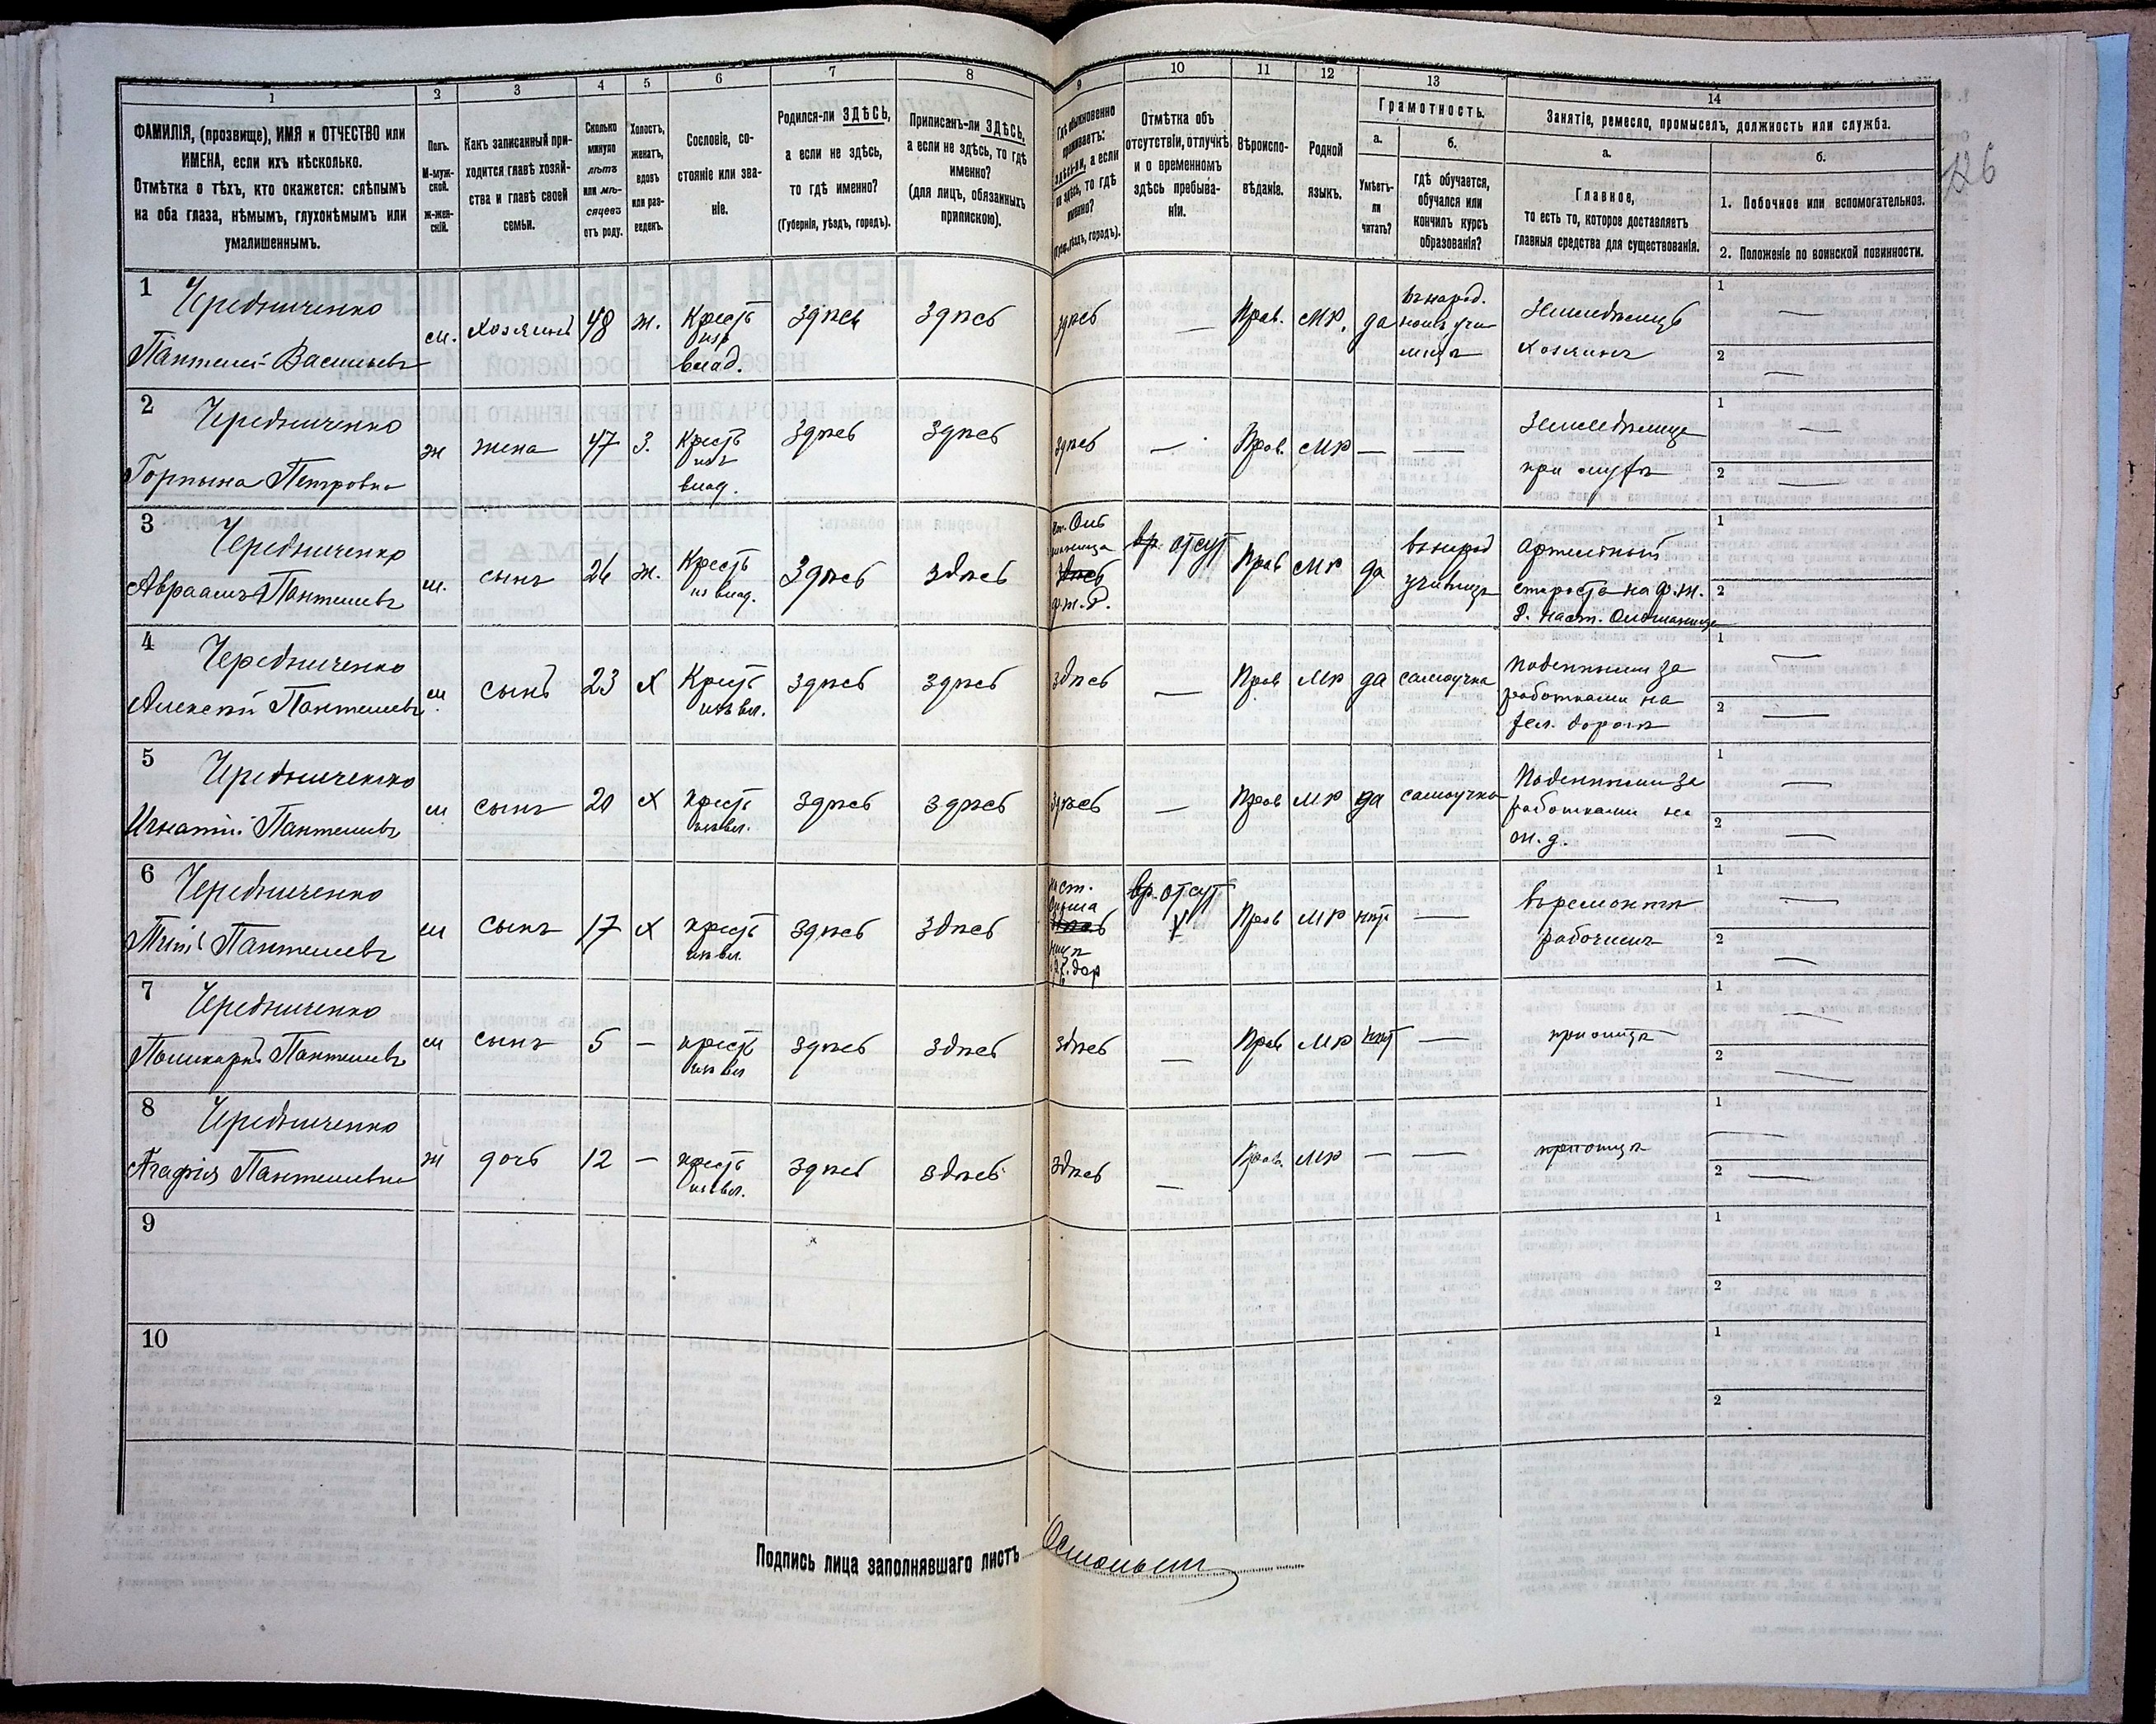 126
1 2 3 4 5 6 7 8 9 10 11 12 13 14
ФАМИЛІЯ, (прозвище), ИМЯ и ОТЧЕСТВО или
ИМЕНА, если ихъ нѣсколько.
Отмѣтка о тѣхъ, кто окажется: слѣпымъ
на оба глаза, нѣмымъ, глухонѣмымъ или
умалишеннымъ.
Полъ.
М-муж-
ской.
Ж-жен-
скій.
Какъ записанный при-
ходится главѣ хозяй-
ства и главѣ своей
семьи.
Сколько
минуло
лѣтъ
или мѣ-
сяцевъ
отъ роду.
Холостъ,
женатъ,
вдовъ
или раз-
веденъ.
Сословіе, со-
стояніе или зва-
ніе.
Родился-ли ЗДѢСЬ,
а если не здѣсь,
то гдѣ именно?
(Губернія, уѣздъ, городъ).
Приписанъ-ли ЗДѢСЬ,
а если не здѣсь, то гдѣ
именно?
(для лицъ, обязанныхъ
припискою).
Гдѣ обыкновенно
проживаетъ:
здѣсь-ли, а если
не здѣсь, то гдѣ
именно?
(Губ., уѣздъ, городъ).
Отмѣтка объ
отсутствіи, отлучкѣ
и о временномъ
здѣсь пребыва-
ніи.
Вѣроиспо-
вѣданіе.
Родной
языкъ.
Грамотность.
а.
Умѣетъ-
ли
читать?
б.
гдѣ обучается,
обучался или
кончилъ курсъ
образованія?
Занятіе, ремесло, промыселъ, должность или служба.
а.
Главное,
то есть то, которое доставляетъ
главныя средства для существованія.
б.
1. Побочное или вспомогательное.
2. Положеніе по воинской повинности.
1 Чередниченко
Пантелей Васильевъ
м. хозяинъ 48 ж. Крест.
изъ
влад.
здѣсь здѣсь здѣсь — Прав. МР. да
въ народ.
номъ учи-
лищѣ
Земледѣлецъ
хозяинъ
1 —
2 —
2 Чередниченко
Горпына Петровна
ж жена 47 З. Крест
изъ
влад.
здѣсь здѣсь здѣсь — Прав. МР — —
Земледѣлица
при мужѣ
1 —
2 —
3 Чередниченко
Авраамъ Пантелеевъ
м. сынъ 26 ж. Крест
из влад.
здѣсь здѣсь
здѣсь
ф.ж.д.
вр. отсут Прав МР да
въ народ
училищѣ
Артельный
староста на ф.ж.
д. на ст.
1
2
4 Чередниченко
Алексѣй Пантелеевъ
м. сынъ 23 Х Крест
изъ вл.
здѣсь здѣсь здѣсь — Прав МР да самоучка
Поденными за
работками на
жел. дорогѣ
1 —
2 —
5 Чередниченко
Игнатій Пантелеевъ
м сынъ 20 Х крест
изъ вл.
здѣсь здѣсь здѣсь — Прав МР да самоучка
Поденными за
работками на
ж.д.
1 —
2 —
6 Чередниченко
Пантелеевъ
м сынъ 17 Х крест
изъ вл.
здѣсь здѣсь
на ст.
здѣсь
вр. отсут Прав МР нѣт —
въ ремонтѣ
рабочимъ
1 —
2 —
7 Чередниченко
Поликарпъ Пантелеевъ
м сынъ 5 — крест
изъ вл
здѣсь здѣсь здѣсь — Прав МР нѣт —
при отцѣ
1 —
2 —
8 Чередниченко
Агафія Пантелеевна
ж дочь 12 — крест
изъ вл.
здѣсь здѣсь здѣсь — Прав. МР — —
при отцѣ
1 —
2 —
9
1
2
10
1
2
Подпись лица заполнявшаго листъ